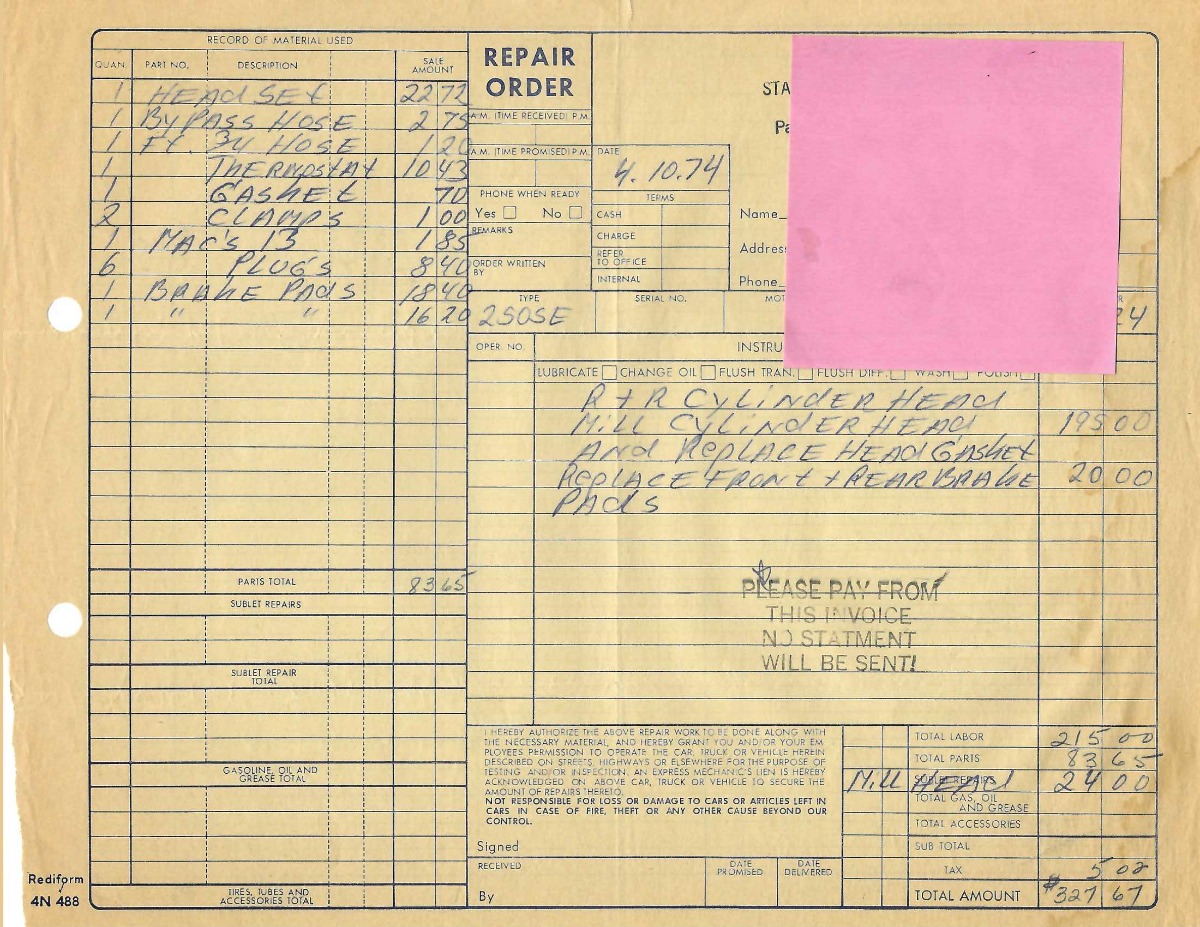 RECORD OF MATERIAL USED
QUAN. PART NO. DESCRIPTION SALE AMOUNT
1 HEAD SET 22 72
1 BYPASS HOSE 2 75
1 FT. 3/4 HOSE 1 20
1 THERMOSTAT 10 43
1 GASKET 70
2 CLAMPS 1 00
1 MAC'S 13 1 85
6 PLUG'S 8 40
1 BRAKE PADS 18 40
1 " " 16 20
PARTS TOTAL 83 65
SUBLET REPAIRS
SUBLET REPAIR TOTAL
GASOLINE, OIL AND GREASE TOTAL
TIRES, TUBES AND ACCESSORIES TOTAL
Rediform
4N 488
REPAIR
ORDER
A.M. TIME RECEIVED P.M.
A.M. TIME PROMISED P.M.
PHONE WHEN READY
Yes No
REMARKS
ORDER WRITTEN BY
DATE
4.10.74
TERMS
CASH
CHARGE
REFER TO OFFICE
INTERNAL
STA
Pa
Name
Addres
Phone
TYPE SERIAL NO. MOT R
250SE 24
OPER. NO. INSTRU
LUBRICATE CHANGE OIL FLUSH TRAN. FLUSH DIFF. WASH POLISH
R + R CYLINDER HEAD
MILL CYLINDER HEAD 195 00
AND REPLACE HEAD GASKET
REPLACE FRONT + REAR BRAKE 20 00
PADS
PLEASE PAY FROM
THIS INVOICE
NO STATMENT
WILL BE SENT!
I HEREBY AUTHORIZE THE ABOVE REPAIR WORK TO BE DONE ALONG WITH
THE NECESSARY MATERIAL, AND HEREBY GRANT YOU AND/OR YOUR EM
PLOYEES PERMISSION TO OPERATE THE CAR, TRUCK OR VEHICLE HEREIN
DESCRIBED ON STREETS, HIGHWAYS OR ELSEWHERE FOR THE PURPOSE OF
TESTING AND/OR INSPECTION. AN EXPRESS MECHANIC'S LIEN IS HEREBY
ACKNOWLEDGED ON ABOVE CAR, TRUCK OR VEHICLE TO SECURE THE
AMOUNT OF REPAIRS THERETO.
NOT RESPONSIBLE FOR LOSS OR DAMAGE TO CARS OR ARTICLES LEFT IN
CARS IN CASE OF FIRE, THEFT OR ANY OTHER CAUSE BEYOND OUR
CONTROL.
Signed
RECEIVED
By
DATE PROMISED
DATE DELIVERED
TOTAL LABOR 215 00
TOTAL PARTS 83 65
Mill HEAD SUBLET REPAIRS 24 00
TOTAL GAS, OIL AND GREASE
TOTAL ACCESSORIES
SUB TOTAL
TAX 5 02
TOTAL AMOUNT $327 67